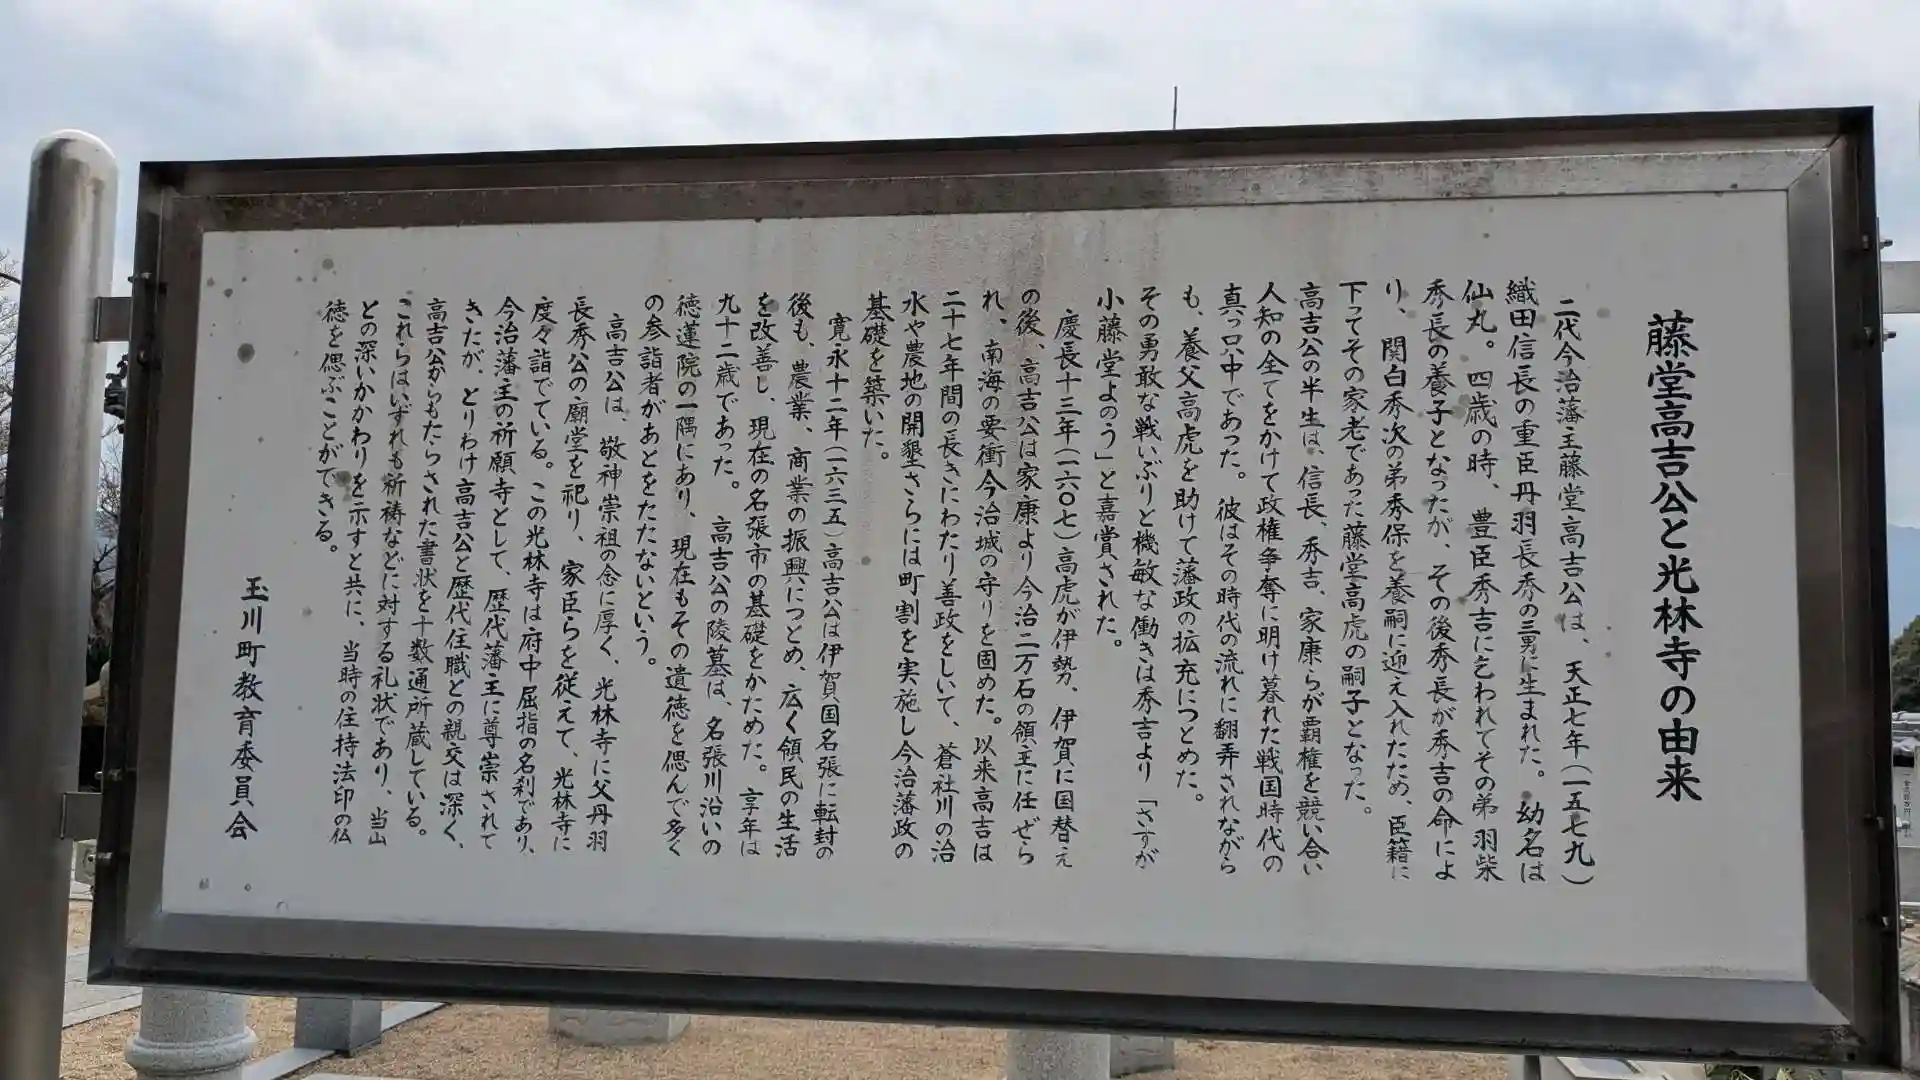 藤堂高吉公と光林寺の由来
二代今治藩主藤堂高吉公は、天正七年(一五七九)
織田信長の重臣丹羽長秀の三男に生まれた。幼名は
仙丸。四歳の時、豊臣秀吉に乞われてその弟羽柴
秀長の養子となったが、その後秀長が秀吉の命によ
り、関白秀次の弟秀保を養嗣に迎え入れたため、臣籍に
下ってその家老であった藤堂高虎の嗣子となった。
高吉公の半生は、信長、秀吉、家康らが覇権を競い合い
人知の全てをかけて政権争奪に明け暮れた戦国時代の
真っ只中であった。彼はその時代の流れに翻弄されながら
も、養父高虎を助けて藩政の拡充につとめた。
その勇敢な戦いぶりと機敏な働きは秀吉より「さすが
小藤堂よのう」と嘉賞された。
慶長十三年(一六〇七)高虎が伊勢、伊賀に国替え
の後、高吉公は家康より今治二万石の領主に任ぜら
れ、南海の要衝今治城の守りを固めた。以来高吉は
二十七年間の長きにわたり善政をしいて、蒼社川の治
水や農地の開墾さらには町割を実施し今治藩政の
基礎を築いた。
寛永十二年(一六三五)高吉公は伊賀国名張に転封の
後も、農業、商業の振興につとめ、広く領民の生活
を改善し、現在の名張市の基礎をかためた。享年は
九十二歳であった。 高吉公の陵墓は、名張川沿いの
徳蓮院の一隅にあり、現在もその遺徳を偲んで多く
の参詣者があとをたたないという。
高吉公は、敬神崇祖の念に厚く、光林寺に父丹羽
長秀公の廟堂を祀り、家臣らを従えて、光林寺に
度々詣でている。この光林寺は府中屈指の名刹であり、
今治藩主の祈願寺として、歴代藩主に尊崇されて
きたが、とりわけ高吉公と歴代住職との親交は深く、
高吉公からもたらされた書状を十数通所蔵している。
これらはいずれも祈祷などに対する礼状であり、当山
との深いかかわりを示すと共に、当時の住持法印の仏
徳を偲ぶことができる。
玉川町教育委員会